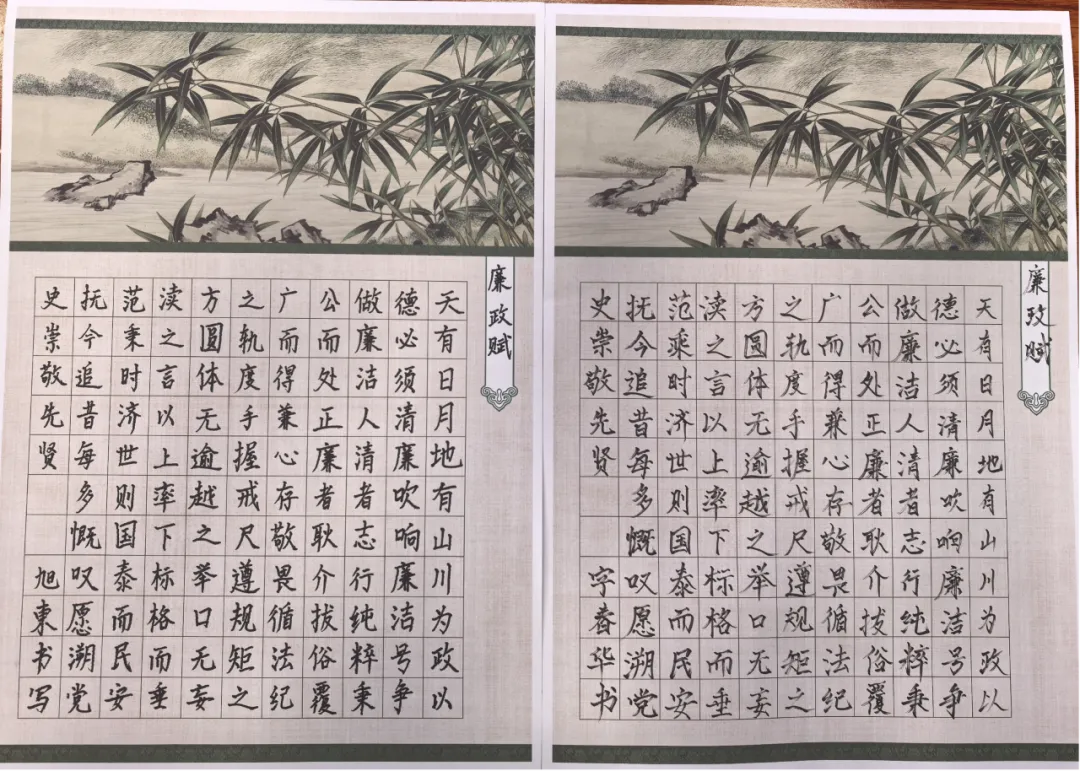 廉政赋
天有日月地有山川为政以
德必须清廉吹响廉洁号争
做廉洁人清者志行纯粹秉
公而处正廉者耿介拔俗覆
广而得兼心存敬畏循法纪
之轨度手握戒尺遵规矩之
方圆体无逾越之举口无妄
渎之言以上率下标格而垂
范秉时济世则国泰而民安
抚今追昔每多慨叹愿溯党
史崇敬先贤 旭東书写
廉政赋
天有日月地有山川为政以
德必须清廉吹响廉洁号争
做廉洁人清者志行纯粹秉
公而处正廉者耿介拔俗覆
广而得兼心存敬畏循法纪
之轨度手握戒尺遵规矩之
方圆体无逾越之举口无妄
渎之言以上率下标格而垂
范乘时济世则国泰而民安
抚今追昔每多慨叹愿溯党
史崇敬先贤 字春华书